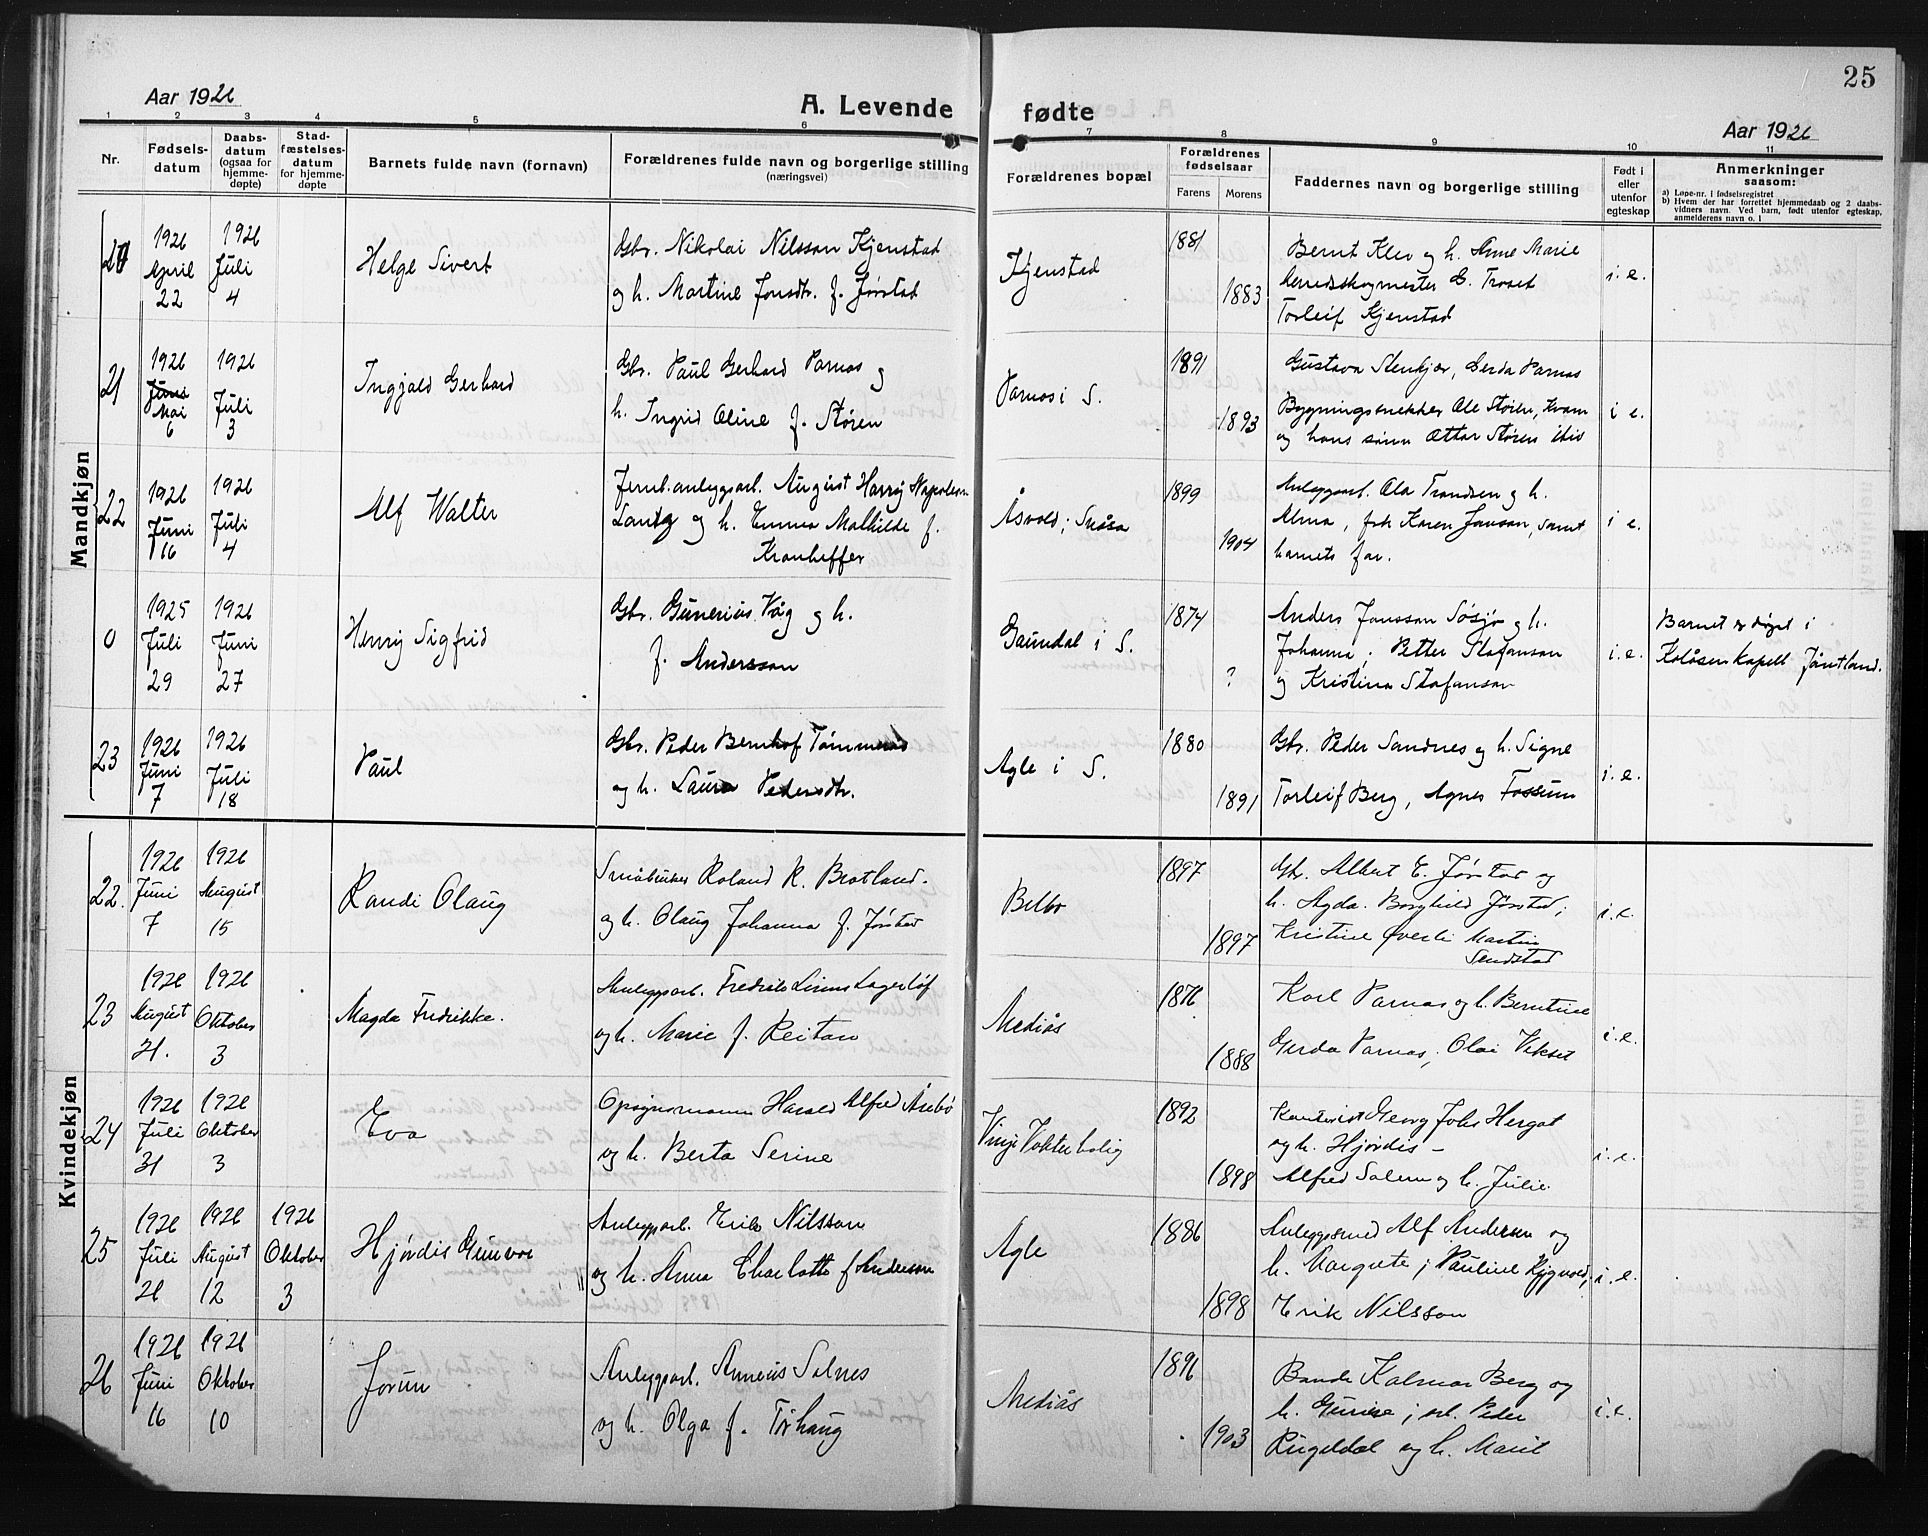 25
Aar 1926
A. Levende fødte
Aar 1926
1 2 3 4 5 6 7 8 9 10 11
Nr.
Fødsels-
datum
Daabs-
datum
(ogsaa for
hjemme-
døpte)
Stad-
fæstelses-
datum
for hjemme-
døpte
Barnets fulde navn (fornavn)
Forældrenes fulde navn og borgerlige stilling
(næringsvei)
Forældrenes bopæl
Forældrenes
fødselsaar
Farens Morens
Faddernes navn og borgerlige stilling
Født i
eller
utenfor
egteskap
Anmerkninger
saasom:
a) Løpe-nr. i fødselsregistret
b) Hvem der har forrettet hjemmedaab og 2 daabs-
vidners navn. Ved barn, født utenfor egteskap,
anmelderens navn o. l
Mandkjøn
20
1926
April
22
1926
Juli
4
Helge Sivert
Gbr. Nikolai Nilsson Kjenstad
og h. Martine Jonsdtr. f. Jørstad
Kjenstad
1881
1883
Bernt Klev og h. Anne Marie
herredskogmester E. Troset
Torleif Kjenstad
i. e.
21
1926
Juni
Mai
6
1926
Juli
3
Ingjald Gerhard
Gbr. Paul Gerhard Parnas og
h. Ingrid Oline f. Støren
Parnas i S.
1891
1893
Gustava Stenkjær, Gerda Parnas
Bygningssnekker Ole Støren, Kvam
og hans sønn Ottar Støren ibid
i e.
22
1926
Juni
16
1926
Juli
4
Alf Walter
Jernb.anlygsarb. August Harry Napoleon
Lantz og h. Emma Mathilde f.
Kronheffer
Åsvold, Snåsa
1899
1904
Anleggsarb. Ola Trondsen og h.
Alma, frk Karen Jonson, samt
barnets far.
i e.
0
1925
Juli
29
1926
Juni
27
Henry Sigfrid
Gbr. Gunerius Våg og h.
f. Andersson
Gaundal i S.
1874
?
Anders Jonsson Søsjø og h.
Johanna, Petter Stafanson
og Kristina Stafanson
i. e.
Barnet er døpt i
Kolåsen Kapell Jämtland.
23
1926
Juni
7
1926
Juli
18
Paul
Gbr. Peder Bernhof Tømmerås
og h. Laura Pedersdtr.
Agle i S.
1880
1891
Gbr. Peder Sandnes og h. Signe
Torleif Berg, Agnes Fossum
i. e.
Kvindekjøn
22.
1926
Juni
7
1926
August
15
Randi Olaug
Småbruker Roland K. Brotland.
og h. Olaug Johanna f. Jørstad
Belbo
1897
1897
Gbr. Albert E. Jørstad og
h. Agda. Borghild Jørstad;
Kristine Øverli Martin
Sandstad
i. e.
23
1926
August
21.
1926
Oktober
3
Magda Fredrikke.
Anleggsarb. Fredrik Linus Lagerløf
og h. Marie f. Reitan
Mediås
1876
1888
Karl Parnas og h. Berntine
Gerda Parnas, Olai Vekset
i. e.
24
1926
Juli
31
1926
Oktober
3
Eva
Opsynsmann Harald Alfred Åsebø
og h. Berta Serine
Vinje Vokterbolig
1892
1898
Kontorist Georg Johs Hergot
og h. Hjørdis –
Alfred Salem og h. Julie
i. e.
25
1926
Juli
26
1926
August
12
1926
Oktober
3
Hjørdis Gunvor
Anleggsarb. Erik Nilsson
og h. Anna Charlotte f Anderson
Agle
1886
1898
Anleggssmed Alf Andersen og
h. Margrete; Pauline
Erik Nilsson
i. e.
26
1926
Juni
16
1926
Oktober
10
Jorun
Anleggsarb. Anneus Solnes
og h. Olga f. Tørhaug
Mediås
1896
1903
Bonde Kalmar Berg og
h. Gurine; arb. Peder
Rugeldal og h. Marit
i. e.